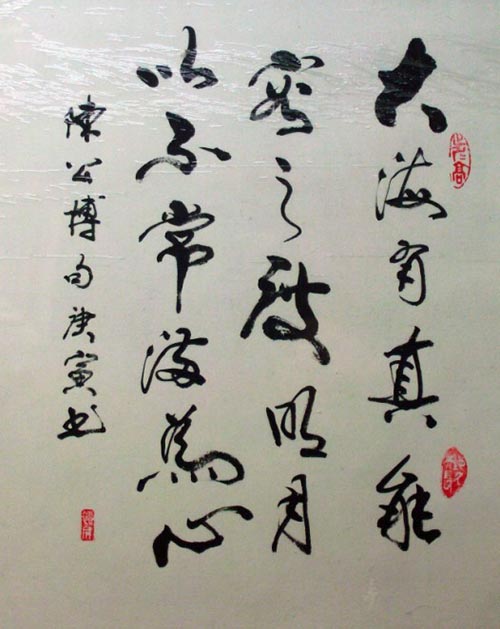 大海有真能
容之度明月
以不常滿為心
陳公博句庚寅书